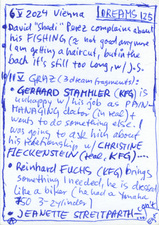 6 V 2024 Vienna DREAMS 125
David "Studi" Perez complains about
his FISHING (is not good anymore
I am getting a haircut, but in the
back it's still too long, w/J.S.
11 V GRAZ (3 dream fragments):
• GERHARD STAMMLER (KFG) is
unhappy w/ his job as
MANAGING doctor (in Head) +
wants to do something else.
was going to ask him about
his relationship w/ CHRISTINE
FLECKENSTEIN (Head, KFG)
• Reinhard FUCHS (KFG) brings
something I needed, he is dressed
like a biker (he had a Yamaha
750 3-zylinder)
• JEANETTE STREITPARTH